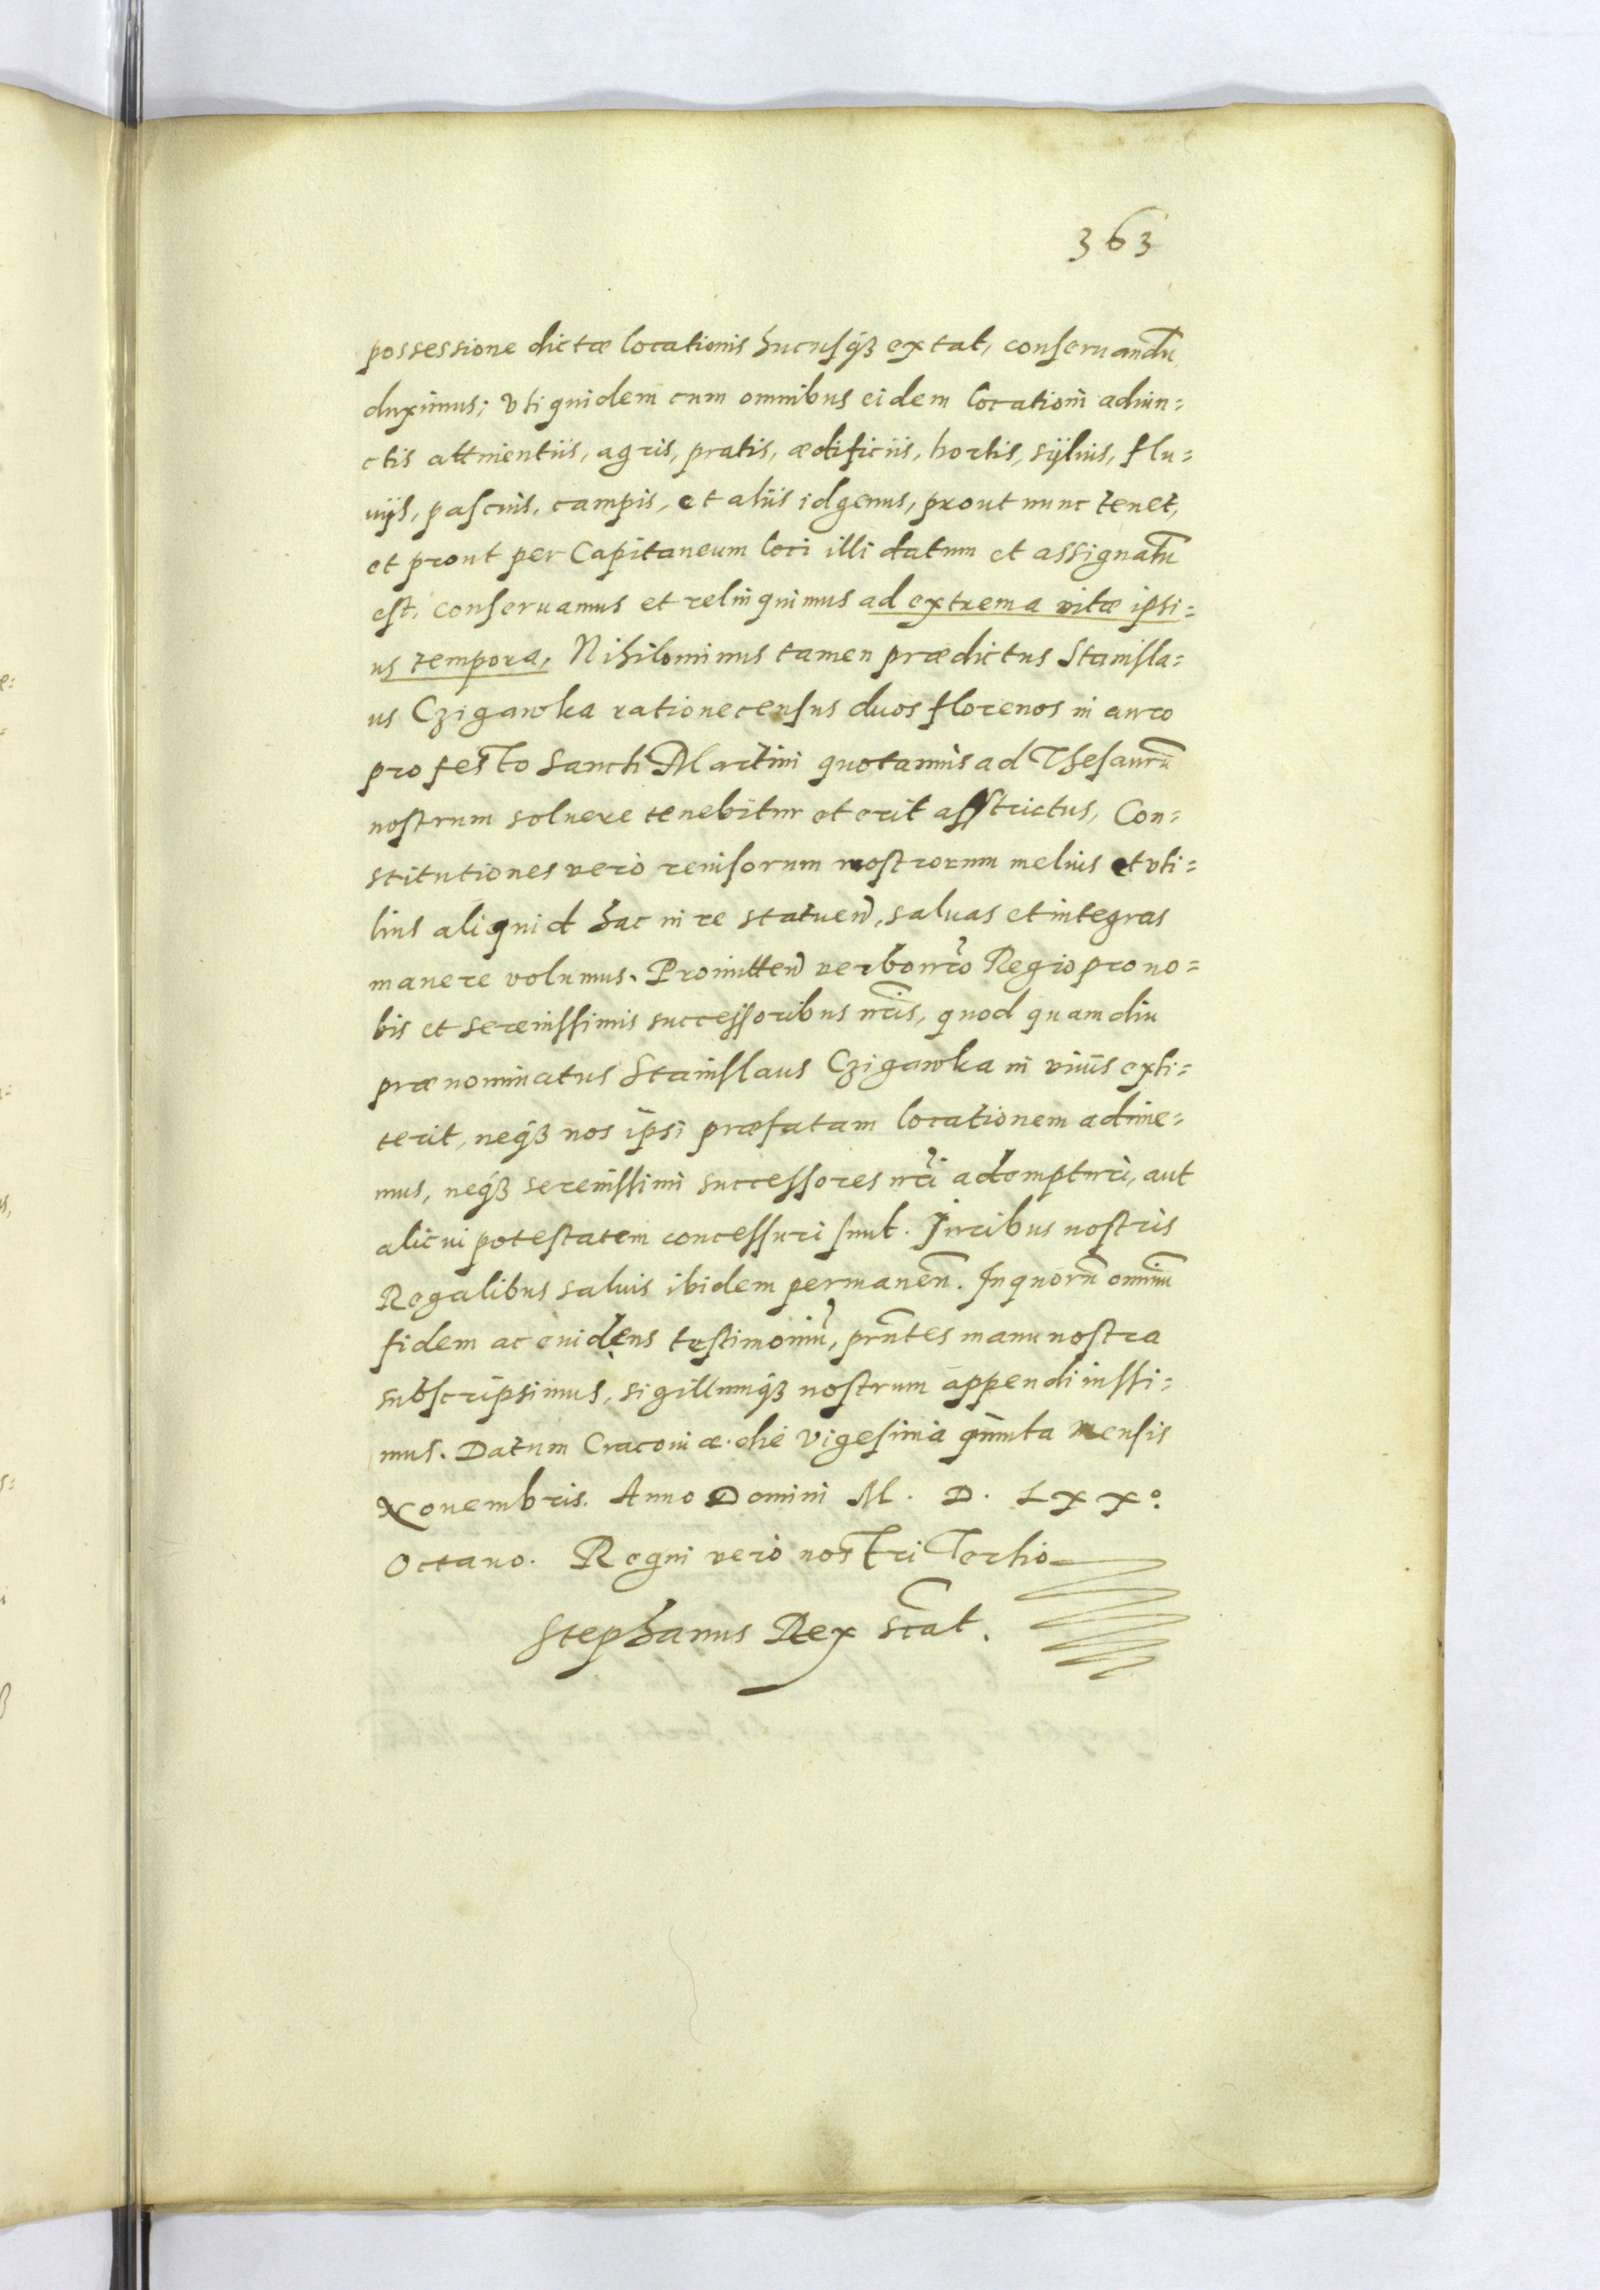 363
possessione dictæ locationis hucusq3 extat, conseruandū
duximus; vti quidem cum omnibus eidem locationi adiun=
ctis attinentiis, agris, pratis, ædificiis, hortis, sÿluis, flu=
uijs, pascuis, campis, et aliis idgenus, prout nunc tenet,
et prout per Capitaneum loci illi datum et assignatū
est, conseruamus et relinquimus ad extrema vitæ ipsi=
us tempora, Nihilominus tamen prædictus Stanisla=
us Czigawka ratione census duos florenos in auro
pro festo Sancti Martini quotannis ad Thesaurū
nostrum soluere tenebitur et erit asstrictus, Con=
stitutiones verò reuisorum nostrorum melius et vti=
lius aliquid hac in re statueñ, saluas et integras
manere volumus. Promitteñ verbo nr̃o Regio pro no=
bis et serenissimis successoribus nr̃is, quod quamdiu
prænominatus Stanislaus Czigawka in viuis exti=
terit, neq3 nos ipsi præfatam locationem adime=
mus, neq3 serenissimi successores nr̃i adempturi, aut
alicui potestatem concessuri sunt. Juribus nostris
Regalibus saluis ibidem permaneñ. In quorū omniū
fidem ac euidens testimoniū, pñtes manu nostra
subscripsimus, sigillumq3 nostrum appendi iussi=
mus. Datum Cracouiæ. die vigesima quinta mensis
Nouembris. Anno Domini M. D. Lxxº.
Octauo. Regni verò nostri Tertio
Stephanus Rex sc̃at.